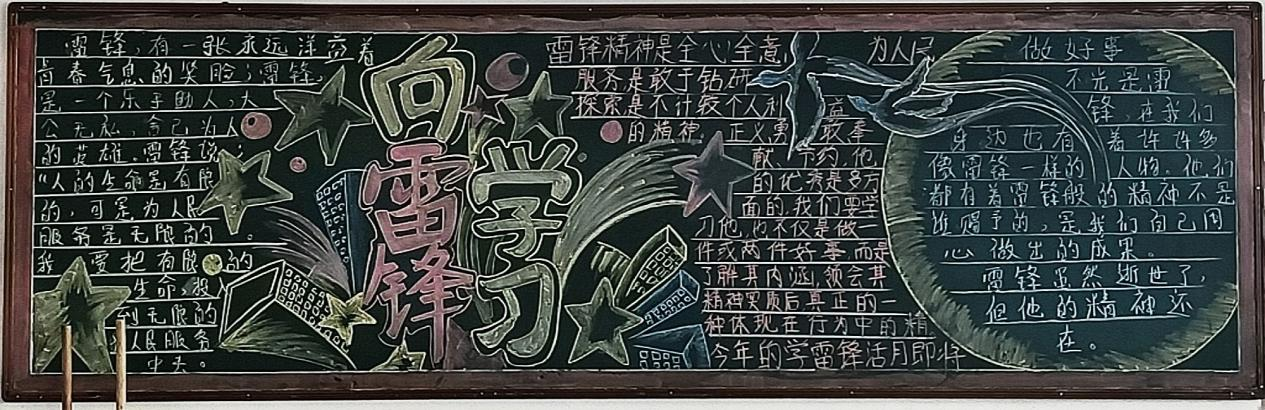 雷锋，有一张永远洋溢着
青春气息的笑脸；雷锋，
是一个乐于助人，大
公无私，舍己为人
的英雄。雷锋说：
“人的生命是有限
的，可是为人民
服务是无限的。
我要把有限的
生命，投入
到无限的
为人民服务
中去。
向雷锋
学习
雷锋精神是全心全意为人民
服务是敢于钻研
探索是不计较个人利益
的精神。正义勇敢奉
献、节约，他
的优秀是多方
面的，我们要学
习他，也不仅是做一
件或两件好事，而是
了解其内涵，领会其
精神实质后真正的一
种体现在行为中的精
今年的学雷锋活月即将
做好事
不光是雷
锋，在我们
身边也有着许许多
像雷锋一样的人物。他们
都有着雷锋般的精神不是
谁赐予的，是我们自己用
心做出的成果。
雷锋虽然逝世了，
但他的精神还
在。